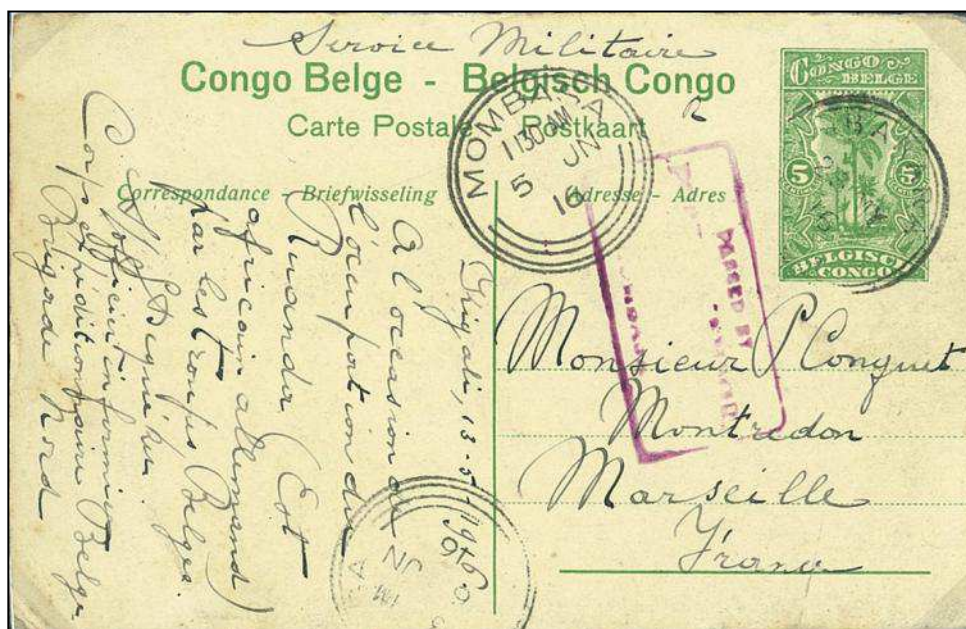 Service Militaire
Congo Belge - Belgisch Congo
Carte Postale - Postkaart
Correspondance - Briefwisseling
(Adresse - Adres)
CONGO BELGE
5 5
BELGISCH CONGO
MOMBASA
1130AM
5 JN
16
PASSED BY
Monsieur P Conquet
Montredon
Marseille
France
Kigali, 13-5-1916
A l'occasion de
l'occupation du
Ruanda (Est
africain allemand)
par les troupes Belges.
L'officier infirmier
Corps expéditionnaire Belge
Brigade Nord